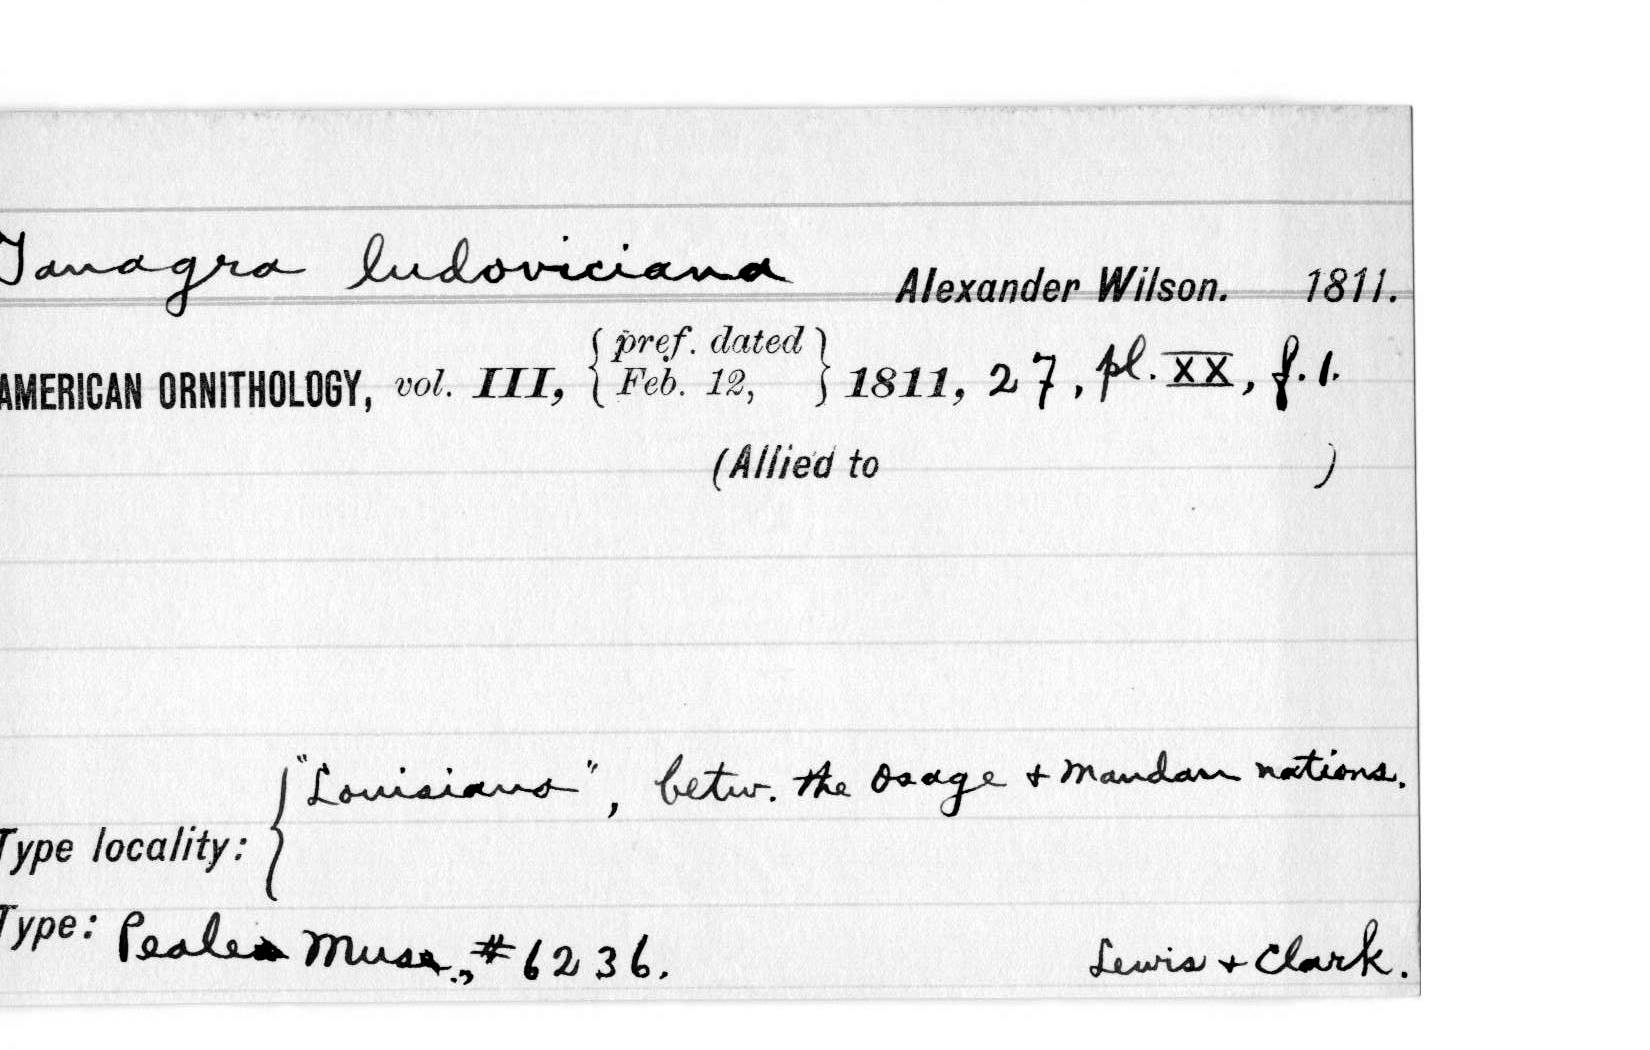 Tanagra ludoviciana Alexander Wilson. 1811.
AMERICAN ORNITHOLOGY, vol. III, {pref. dated Feb. 12,} 1811, 27, pl. XX, f. 1.
(Allied to )
Type locality: { "Louisiana", betw. the Osage + Mandan nations.
Type: Peales Mus., #6236. Lewis + Clark.